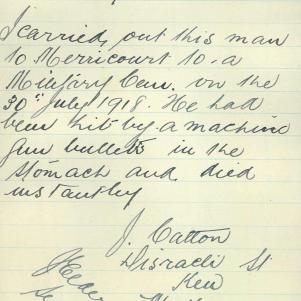 I carried out this man
to Mericourt to a
Military Cem. on the
30th July 1918. He had
been hit by a machine
gun bullets in the
stomach and died
instantley
J. Catton
Disraeli St
Kew